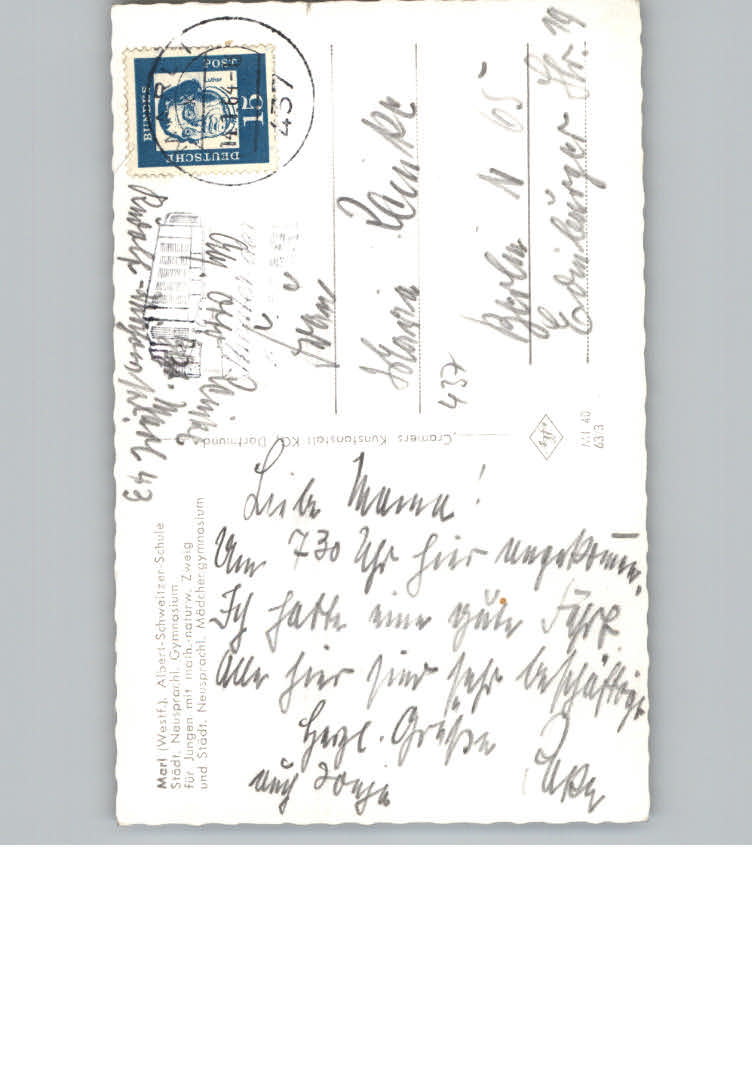 Marl (Westf.), Albert-Schweitzer-Schule
Städt. Neusprachl. Gymnasium
für Jungen mit math.-naturw. Zweig
und Städt. Neusprachl. Mädchengymnasium
Liebe Mama!
Um 730 Uhr hier angekommen.
Ich hatte eine gute Fahrt.
Alle hier sind sehr beschäftigt.
Herzl. Grüße
auch
Cramers Kunstanstalt KG, Dortmund
Agfa
M1 40
63/3
DEUTSCHE
BUNDES
POST
15
Luther
437
Frau
Maria Reinke
437
Berlin N 65
Edinburger Str. 19
43